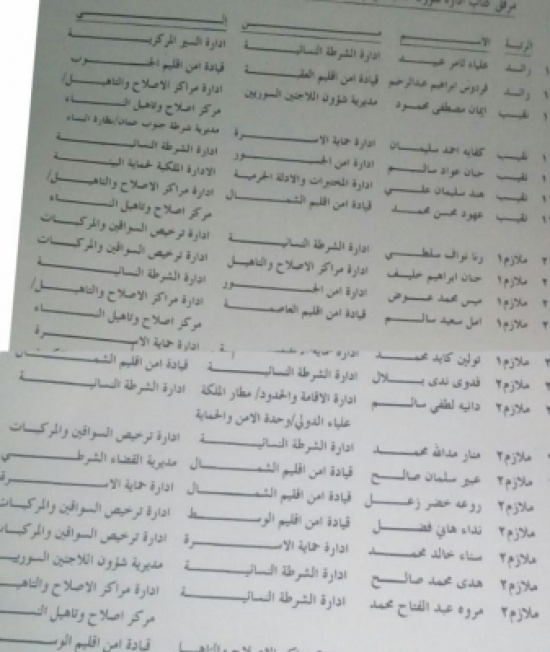 مرفق كتاب ادارة
الرتبة الاســـم مـــن إلـــى
رائد علياء ثامر عبيد ادارة الشرطة النسائية ادارة السير المركزية
رائد فردوس ابراهيم عبدالرحيم قيادة امن اقليم العقبة قيادة امن اقليم الجنوب
نقيب ايمان مصطفى محمود مديرية شؤون اللاجئين السوريين ادارة مراكز الاصلاح والتاهيل/
مركز اصلاح وتاهيل النساء
نقيب كفايه احمد سليمان ادارة حماية الاسرة مديرية شرطة جنوب عمان/نظارة النساء
نقيب حنان عواد سالم ادارة امن الجسور ادارة الشرطة النسائية
نقيب هند سليمان علي ادارة المختبرات والادلة الجرمية الادارة الملكية لحماية البيئة
نقيب عهود محسن محمد قيادة امن اقليم الشمال ادارة مراكز الاصلاح والتاهيل/
مركز اصلاح وتاهيل النساء
ملازم١ رنا نواف سلطي ادارة الشرطة النسائية ادارة ترخيص السواقين والمركبات
ملازم١ حنان ابراهيم خليف ادارة مراكز الاصلاح والتاهيل ادارة ترخيص السواقين والمركبات
ملازم١ ميس محمد عوض ادارة امن الجسور ادارة الشرطة النسائية
ملازم١ امل سعيد سالم قيادة امن اقليم العاصمة ادارة مراكز الاصلاح والتاهيل/
مركز اصلاح وتاهيل النساء
ادارة حماية الاسرة
ملازم٢ تولين كايد محمد ادارة حماية
ملازم٢ فدوى ندى بلال ادارة الشرطة النسائية قيادة امن اقليم الشمال
ملازم٢ دانيه لطفي سالم ادارة الاقامة والحدود/ مطار الملكة ادارة الشرطة النسائية
علياء الدولي/وحدة الامن والحماية
ملازم٢ منار مدالله محمد ادارة الشرطة النسائية ادارة ترخيص السواقين والمركبات
ملازم٢ عبير سلمان صالح قيادة امن اقليم الشمال مديرية القضاء الشرطي
ملازم٢ روعه خضر زعل قيادة امن اقليم الشمال ادارة حماية الاسرة
ملازم٢ نداء هاني فضل قيادة امن اقليم الوسط ادارة ترخيص السواقين والمركبات
ملازم٢ سناء خالد محمد ادارة حماية الاسرة ادارة ترخيص السواقين والمركبات
ملازم٢ هدى محمد صالح ادارة الشرطة النسائية مديرية شؤون اللاجئين السوريين
ملازم٢ مروه عبد الفتاح محمد ادارة الشرطة النسائية ادارة مراكز الاصلاح والتاهيل
مركز اصلاح وتاهيل
قيادة امن اقليم الوسط